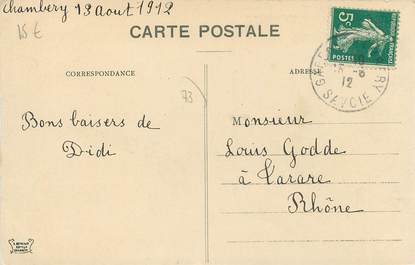 Chambery 13 Aout 1912
15 €
CARTE POSTALE
CORRESPONDANCE
ADRESSE
5c
POSTES
15-8
12
SAVOIE
73
Bons baisers de
Didi
Monsieur
Louis Godde
à Tarare
Rhône